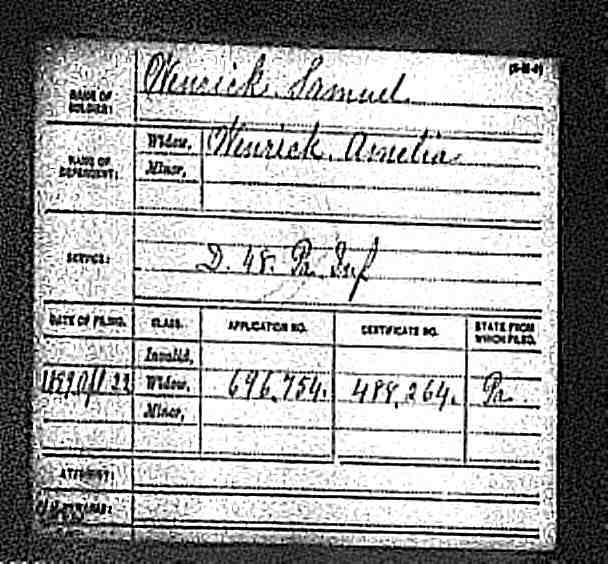 NAME OF SOLDIER: Wenrick, Samuel
NAME OF DEPENDENT: Widow, Wenrick, Amelia
Minor,
SERVICE: D. 48. Pa. Inf
DATE OF FILING. CLASS. APPLICATION NO. CERTIFICATE NO. STATE FROM WHICH FILED.
Invalid,
Widow, 696,754. 488,264. Pa.
Minor,
ATTORNEY:
REMARKS: